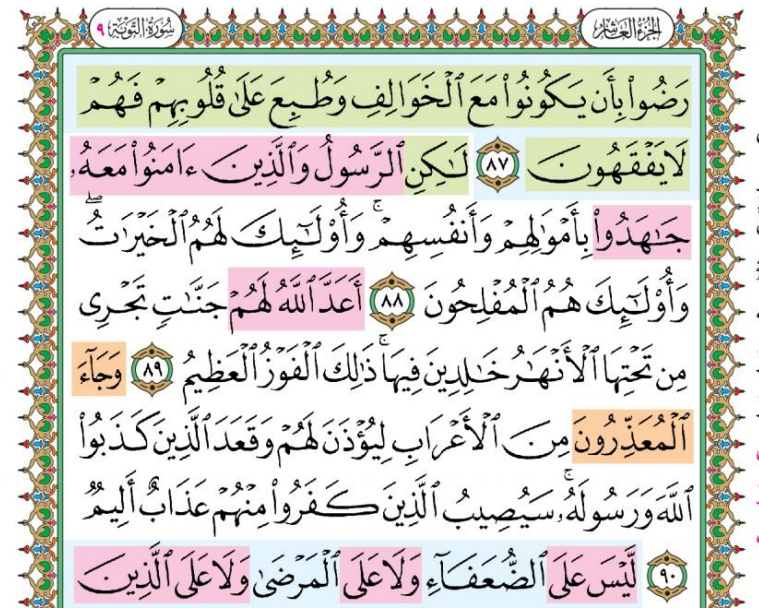 الجزء العاشر سورة التوبة ٩
رَضُوا۟ بِأَن يَكُونُوا۟ مَعَ ٱلْخَوَالِفِ وَطُبِعَ عَلَىٰ قُلُوبِهِمْ فَهُمْ
لَا يَفْقَهُونَ ٨٧ لَـٰكِنِ ٱلرَّسُولُ وَٱلَّذِينَ ءَامَنُوا۟ مَعَهُۥ
جَـٰهَدُوا۟ بِأَمْوَٰلِهِمْ وَأَنفُسِهِمْ ۚ وَأُو۟لَـٰٓئِكَ لَهُمُ ٱلْخَيْرَٰتُ ۖ
وَأُو۟لَـٰٓئِكَ هُمُ ٱلْمُفْلِحُونَ ٨٨ أَعَدَّ ٱللَّهُ لَهُمْ جَنَّـٰتٍ تَجْرِى
مِن تَحْتِهَا ٱلْأَنْهَـٰرُ خَـٰلِدِينَ فِيهَا ۚ ذَٰلِكَ ٱلْفَوْزُ ٱلْعَظِيمُ ٨٩ وَجَآءَ
ٱلْمُعَذِّرُونَ مِنَ ٱلْأَعْرَابِ لِيُؤْذَنَ لَهُمْ وَقَعَدَ ٱلَّذِينَ كَذَبُوا۟
ٱللَّهَ وَرَسُولَهُۥ ۚ سَيُصِيبُ ٱلَّذِينَ كَفَرُوا۟ مِنْهُمْ عَذَابٌ أَلِيمٌ
٩٠ لَّيْسَ عَلَى ٱلضُّعَفَآءِ وَلَا عَلَى ٱلْمَرْضَىٰ وَلَا عَلَى ٱلَّذِينَ